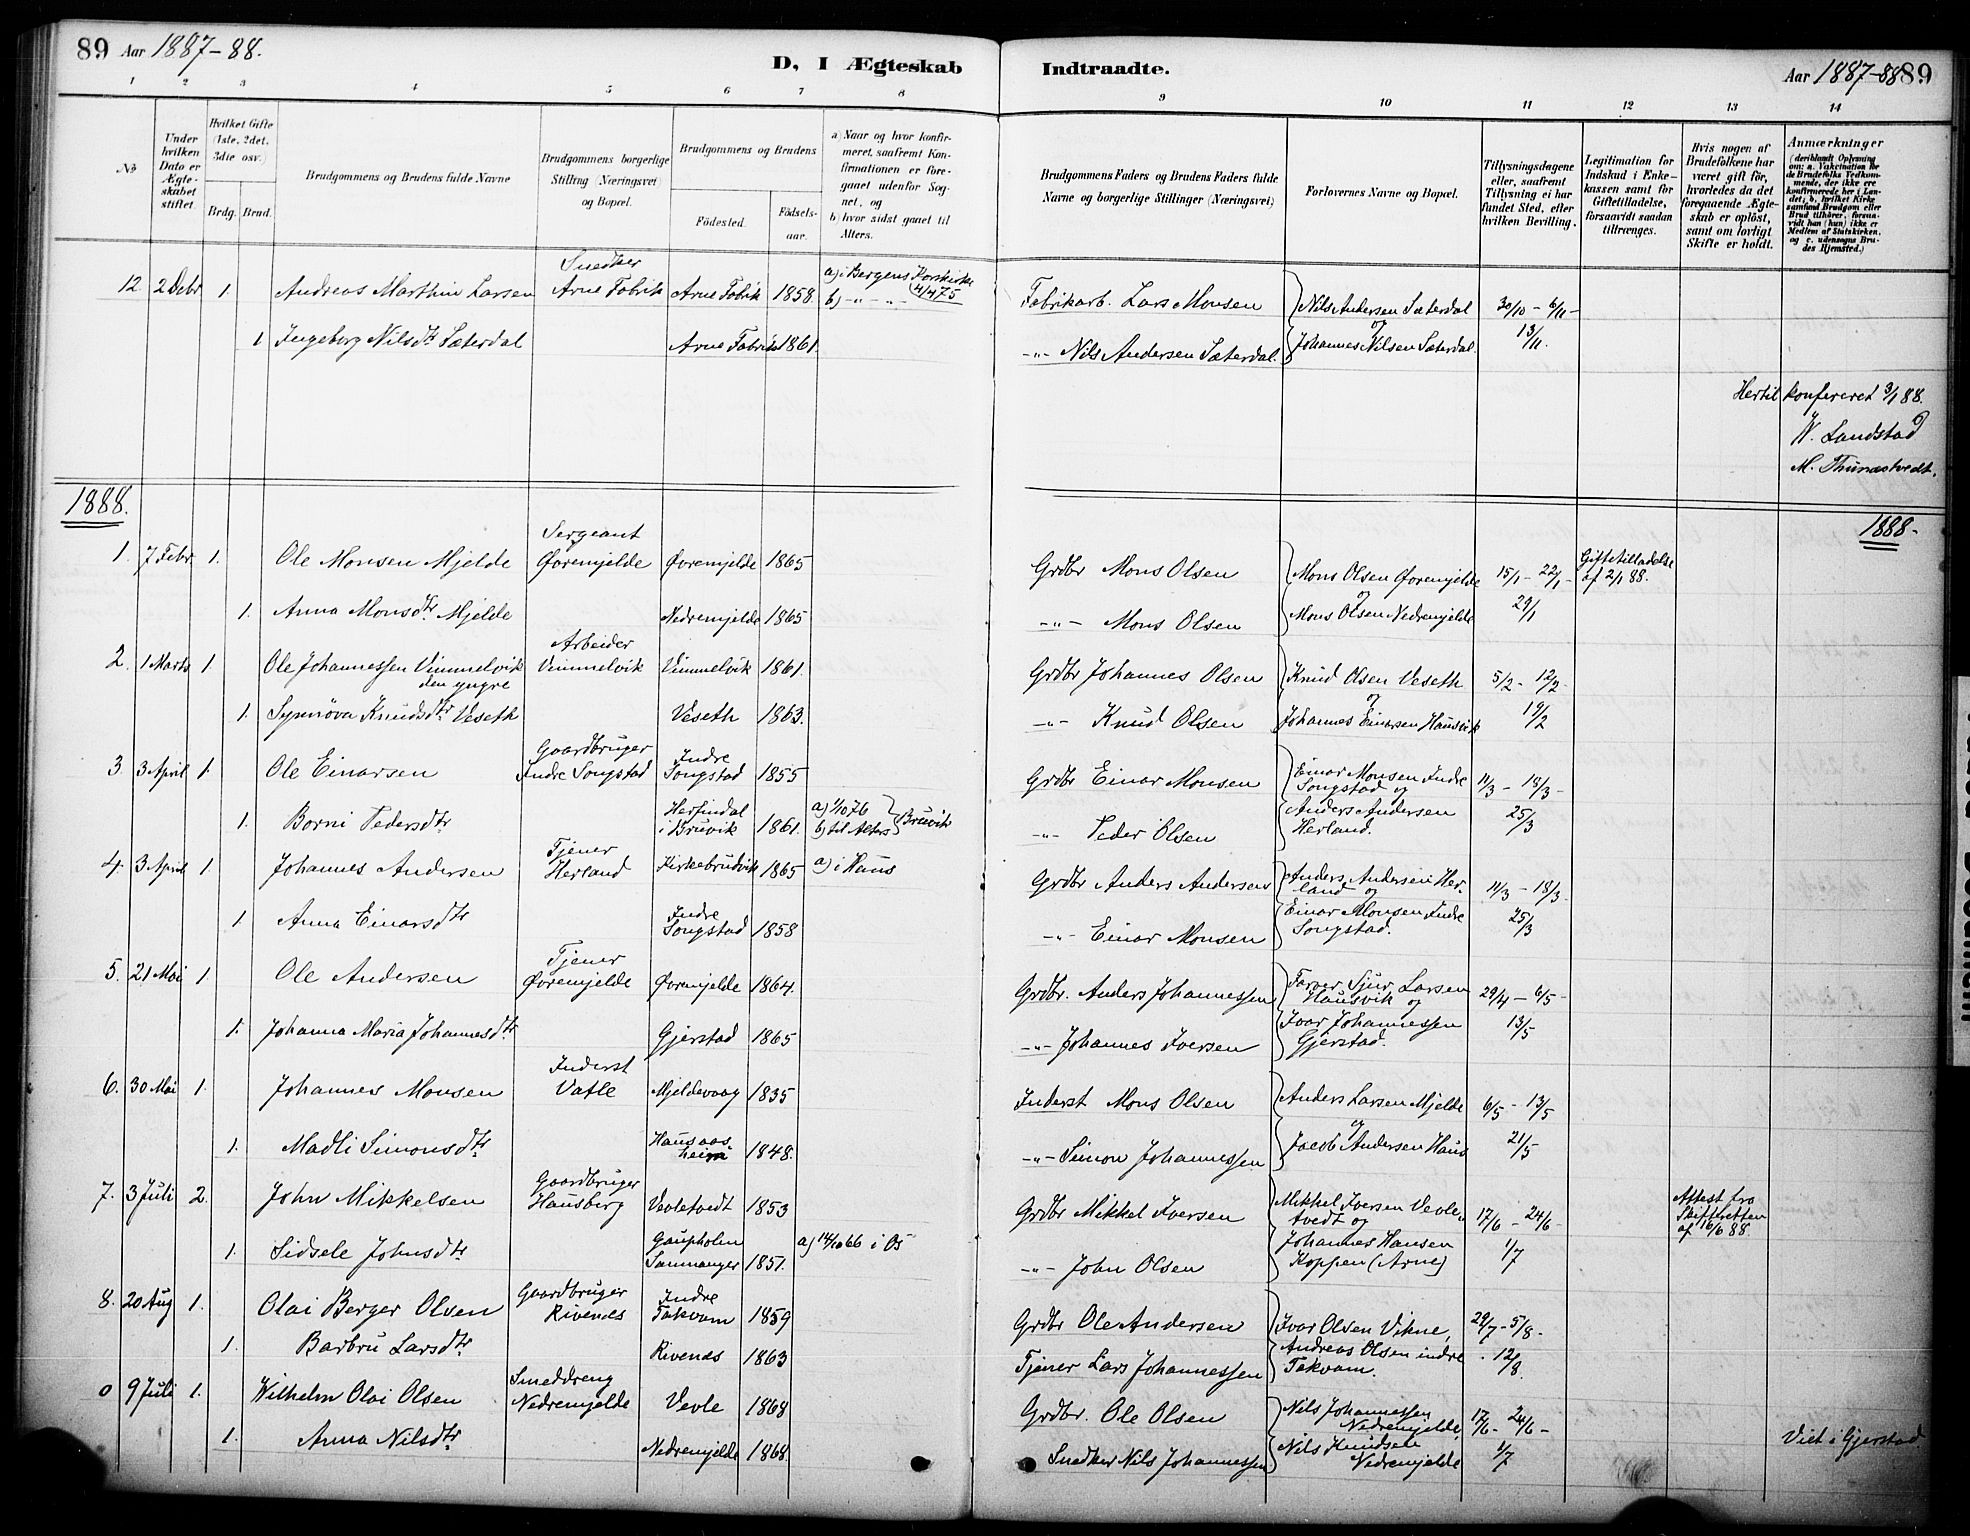 89 Aar 1887-88.
D, I Ægteskab Indtraadte.
Aar 1887-88 89
1 2 3 4 5 6 7 8 9 10 11 12 13 14
No
Under hvilken Dato er Ægteskabet stiftet.
Hvilket Gifte (1ste, 2det, 3die osv.)
Brdg. Brud.
Brudgommens og Brudens fulde Navne
Brudgommens borgerlige Stilling (Næringsvei) og Bopæl.
Brudgommens og Brudens
Fødested. Fødselsaar.
a) Naar og hvor konfirmeret, saafremt Konfirmationen er foregaaet udenfor Sognet, og
b) hvor sidst gaaet til Alters.
Brudgommens Faders og Brudens Faders fulde Navne og borgerlige Stillinger (Næringsvei)
Forlovernes Navne og Bopæl.
Tillysningsdagene eller, saafremt Tillysning ei har fundet Sted, efter hvilken Bevilling.
Legitimation for Indskud i Enkekassen samt for Giftetilladelse, forsaavidt saadan tiltrænges.
Hvis nogen af Brudefolkene har været gift før, hvorledes da det foregaaende Ægteskab er opløst, samt om lovligt Skifte er holdt.
Anmærkninger
(deriblandt Oplysning om: a. Vakcination for de Brudefolks Vedkommende, der ikke ere konfirmerede her i Landet; b. hvilket Kirkesamfund Brudgom eller Brud tilhører, forsaavidt han (hun) ikke er Medlem af Statskirken, og c. udensogns Brudes Hjemsted.)
12 2 Debr 1. Andreas Marthin Larsen Snedker Arne Fabrik Arne Fabrik 1858 a) i Bergens Korskirke 4/4 75 b) -"- -"- Fabrikarb. Lars Monsen Nils Andersen Sæterdal og 30/10 - 6/11 -
1 Ingeborg Nilsdtr Sæterdal Arne Fabrik 1861. -"- Nils Andersen Sæterdal. Johannes Nilsen Sæterdal. 13/11.
Hertil konfereret 3/1 88.
W. Landstad
M. Thunestvedt.
1888. 1888-
1. 7 Febr 1. Ole Monsen Mjelde Sergeant Øvremjelde Øvremjelde 1865 Grdbr Mons Olsen Mons Olsen Øvremjelde og 15/1 - 22/1 - Giftetilladelse af 2/1 88.
1. Anna Monsdtr. Mjelde Nedremjelde 1865 -"- Mons Olsen Mons Olsen Nedremjelde 29/1
2. 1 Marts 1. Ole Johannessen Vimmelvik den yngre Arbeider Vimmelvik Vimmelvik 1861. Grdbr Johannes Olsen Knud Olsen Veseth og 5/2 - 12/2 -
1. Synnøva Knudsdtr Veseth Veseth 1863. -"- Knud Olsen Johannes Einarsen Hausvik 19/2
3. 3 April 1. Ole Einarsen Gaardbruger Indre Songstad Indre Songstad 1855 Grdbr Einar Monsen Einar Monsen Indre Songstad og 11/3 - 18/3 -
1. Borni Pedersdtr. Herfindal i Bruvik 1861. a) 1/10 76 b) til Alters Bruvik -"- Peder Olsen Anders Andersen Herland. 25/3
4. 3 April 1. Johannes Andersen Tjener Herland Kirkebrudvik 1865 a) i Haus Grdbr Anders Andersen Anders Andersen Herland og 11/3 - 18/3 -
1. Anna Einarsdtr Indre Songstad 1858 -"- Einar Monsen Einar Monsen Indre Songstad. 25/3
5. 21 Mai 1. Ole Andersen Tjener Øvremjelde Øvremjelde 1864. Grdbr. Anders Johannessen Farver Sjur Larsen Hausvik og 29/4 - 6/5 -
1. Johanna Maria Johannesdtr. Gjerstad 1865 -"- Johannes Iversen Ivar Johannessen Gjerstad. 13/5
6. 30 Mai 1. Johannes Monsen Inderst Vatle Mjeldevaag 1835 Inderst Mons Olsen Anders Larsen Mjelde og 6/5 - 13/5
1. Madli Simonsdtr. Hausaasheim 1848. -"- Simon Johannessen Jacob Andersen Haus 21/5
7. 3 Juli 2. John Mikkelsen Gaardbruger Hausberg Vevletvedt 1853 Grdbr Mikkel Iversen Mikkel Iversen Vevletvedt og 17/6 - 24/6 - Attest fra Skifteretten af 16/6 88.
1. Sidsele Johnsdtr Gaupholm Samnanger 1851. a) 14/10 66 i Os -"- John Olsen Johannes Hansen Koppen (Arne) 1/7
8. 20 Aug 1. Olai Berger Olsen Gaardbruger Rivenes Indre Takvam 1859 Grdbr Ole Andersen Ivar Olsen Vikne, 29/7 - 5/8 -
1. Barbru Larsdtr. Rivenes 1863 Tjener Lars Johannessen Andreas Olsen indre Takvam. 12/8.
0 9 Juli 1. Wilhelm Olai Olsen Smeddreng Nedremjelde Vevle 1868 Grdbr. Ole Olsen Nils Johannessen Nedremjelde, 17/6 - 24/6 -
1. Anna Nilsdtr. Nedremjelde 1868. Snedker Nils Johannessen Nils Knudsen Nedremjelde 1/7 Viet i Gjerstad